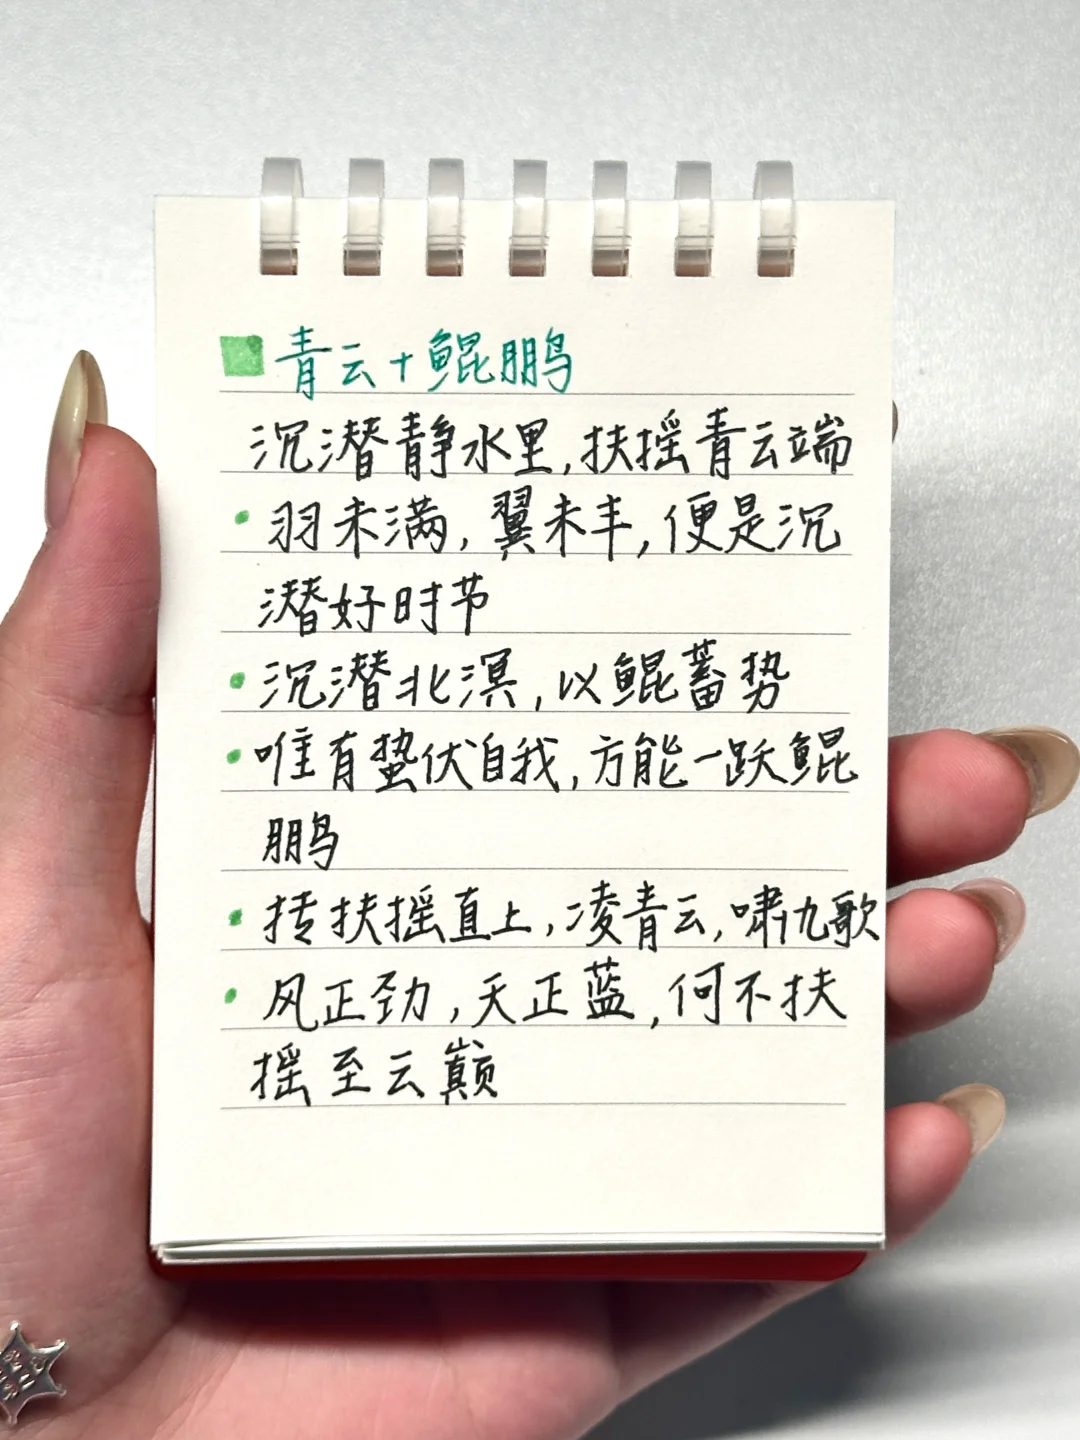 青云+鲲鹏
沉潜静水里,扶摇青云端
·羽未满,翼未丰,便是沉
潜好时节
·沉潜北溟,以鲲蓄势
·唯有蛰伏自我,方能一跃鲲
鹏
·抟扶摇直上,凌青云,啸九歌
·风正劲,天正蓝,何不扶
摇至云巅